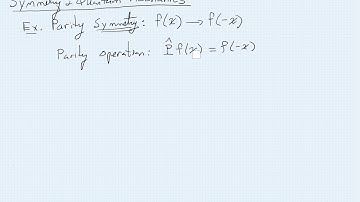 Symmetry & Quantum Mechanics
Ex. Parity Symmetry: f(x) → f(-x)
Parity Operation: P̂ f(x) = f(-x)